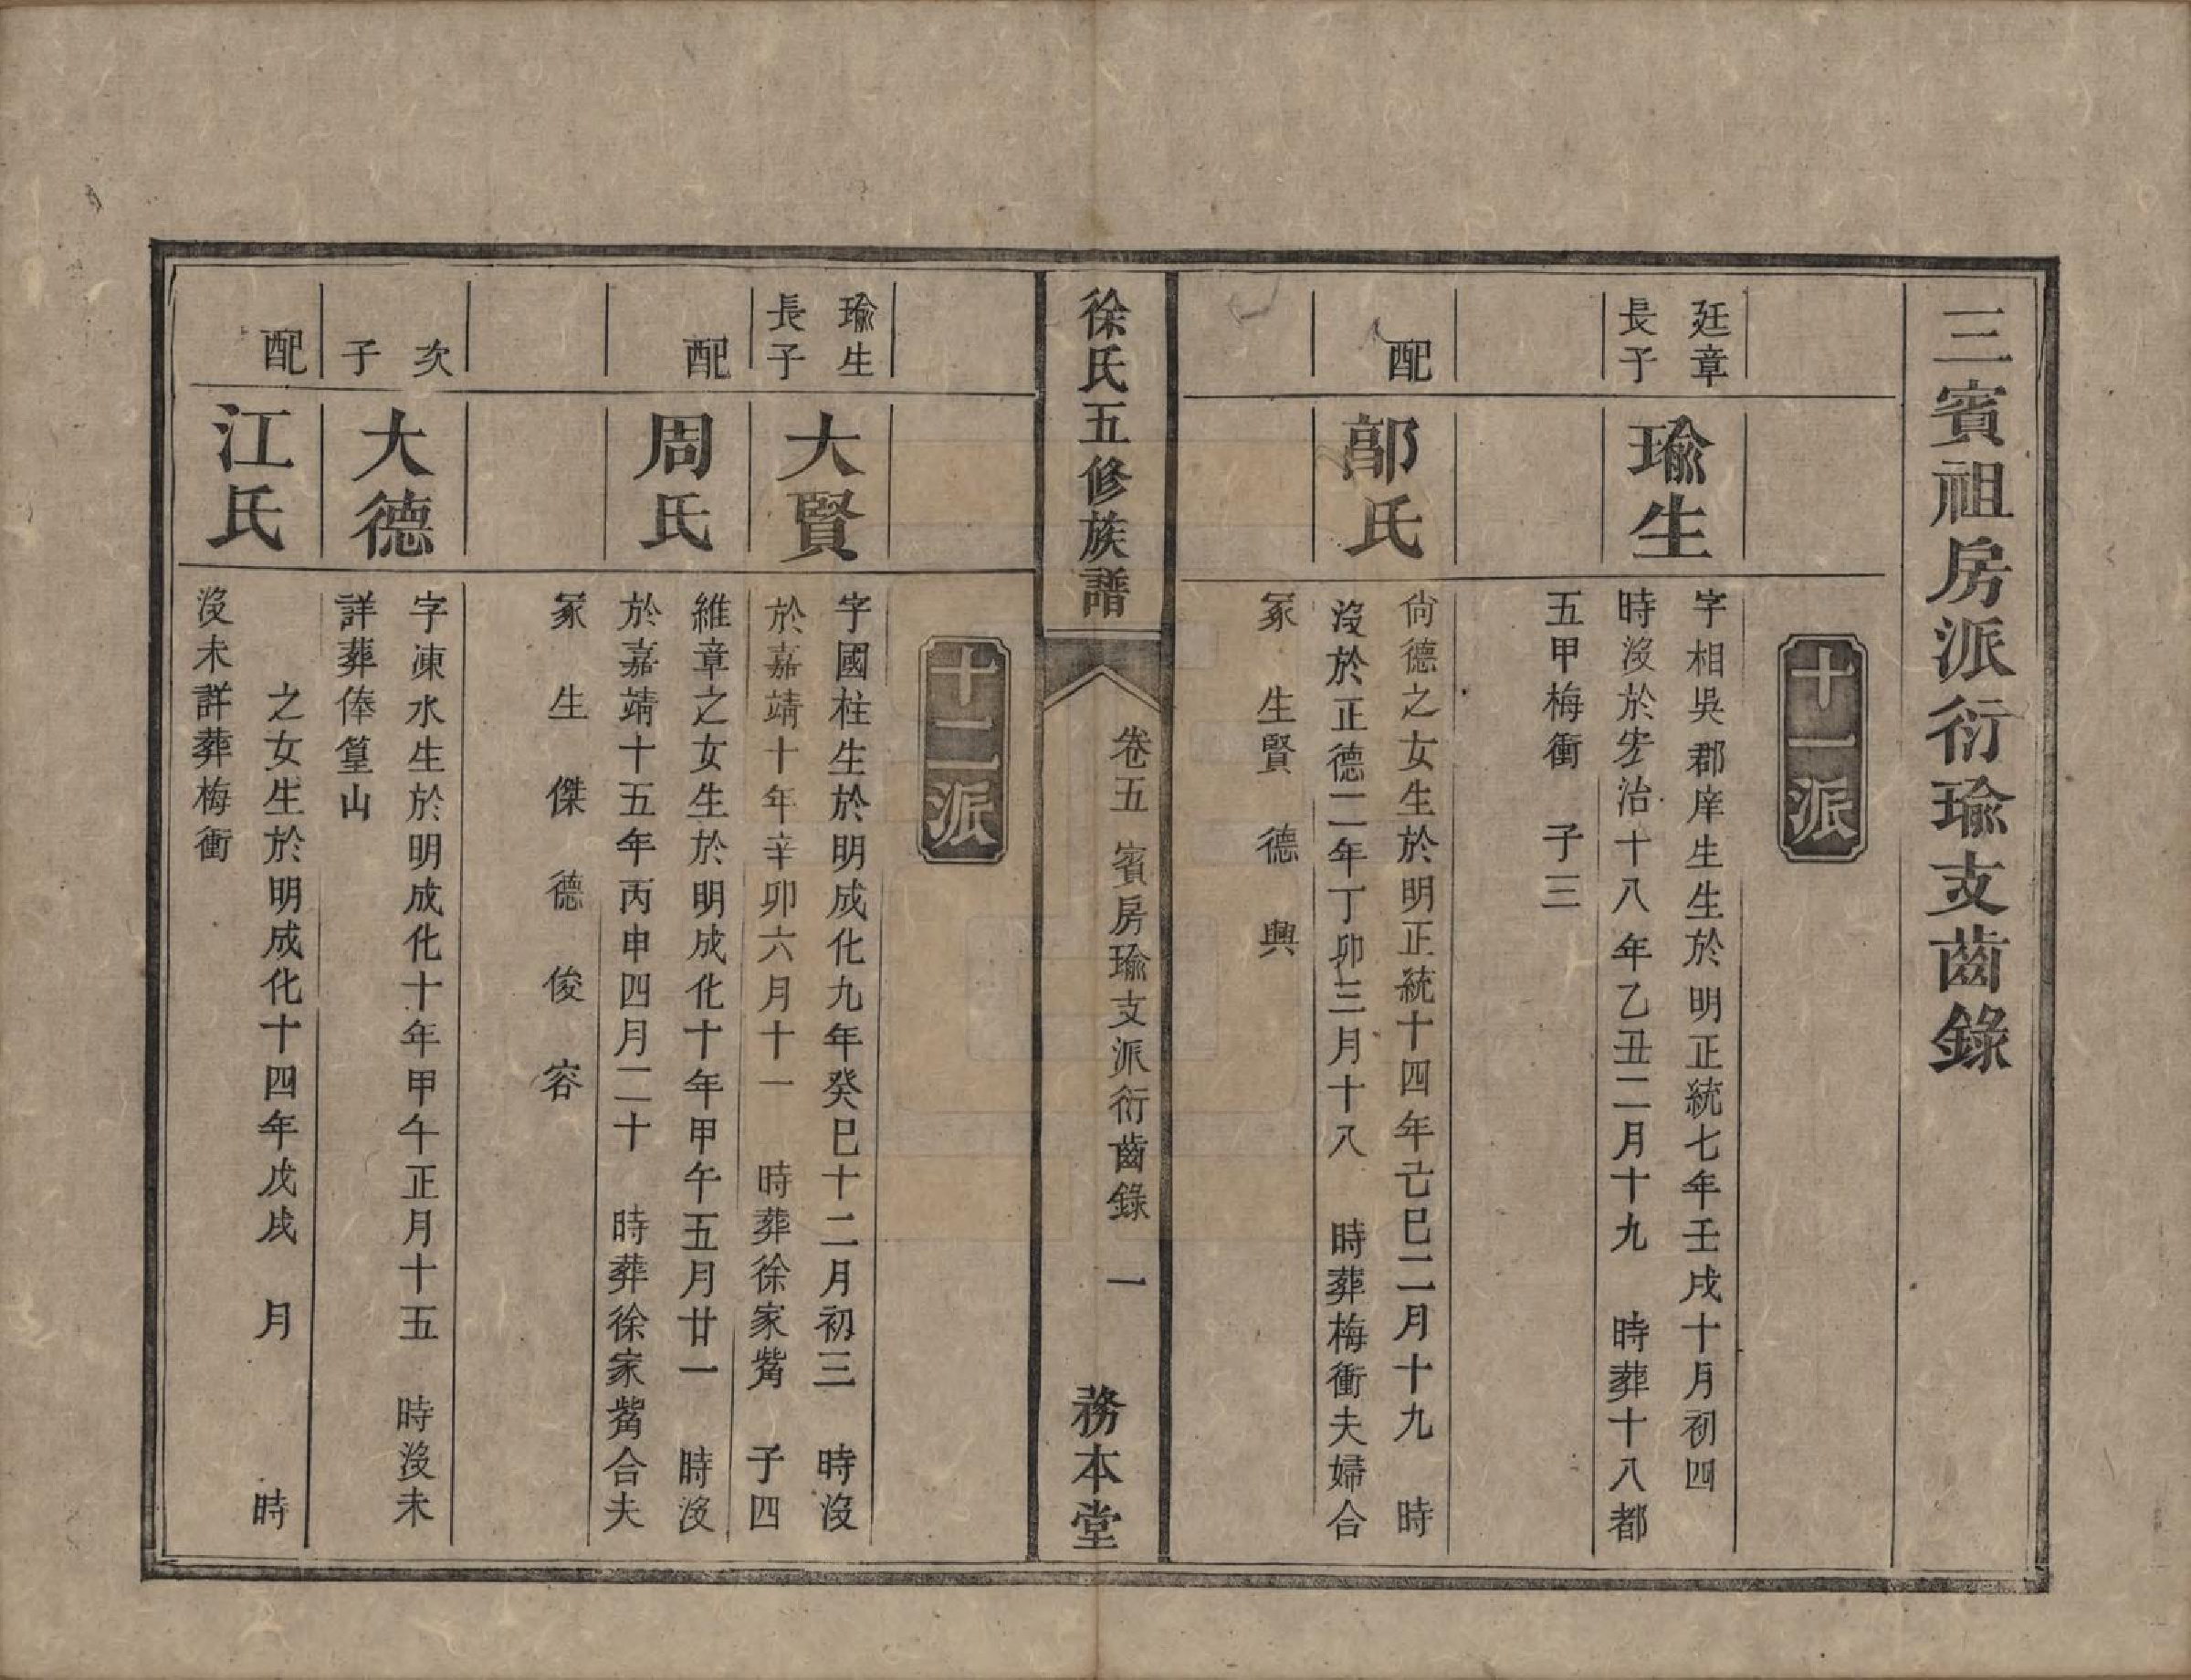 三賓祖房派衍瑜支齒錄
十一派
廷章
長子
瑜生
字相吳郡庠生生於明正統七年壬戌十月初四
時沒於宏治十八年乙丑二月十九 時葬十八都
五甲梅衝 子三
配
郎氏
尙德之女生於明正統十四年己巳二月十九 時
沒於正德二年丁卯三月十八 時葬梅衝夫婦合
冢 生賢 德 興
徐氏五修族譜
卷五 賓房瑜支派衍齒錄 一
務本堂
十二派
瑜生
長子
大賢
字國柱生於明成化九年癸巳十二月初三 時沒
於嘉靖十年辛卯六月十一 時葬徐家觜 子四
配
周氏
維章之女生於明成化十年甲午五月廿一 時沒
於嘉靖十五年丙申四月二十 時葬徐家觜合夫
冢 生 傑 德 俊 容
次
子
大德
字凍水生於明成化十年甲午正月十五 時沒未
詳葬俸篁山
配
江氏
之女生於明成化十四年戊戌 月 時
沒未詳葬梅衝